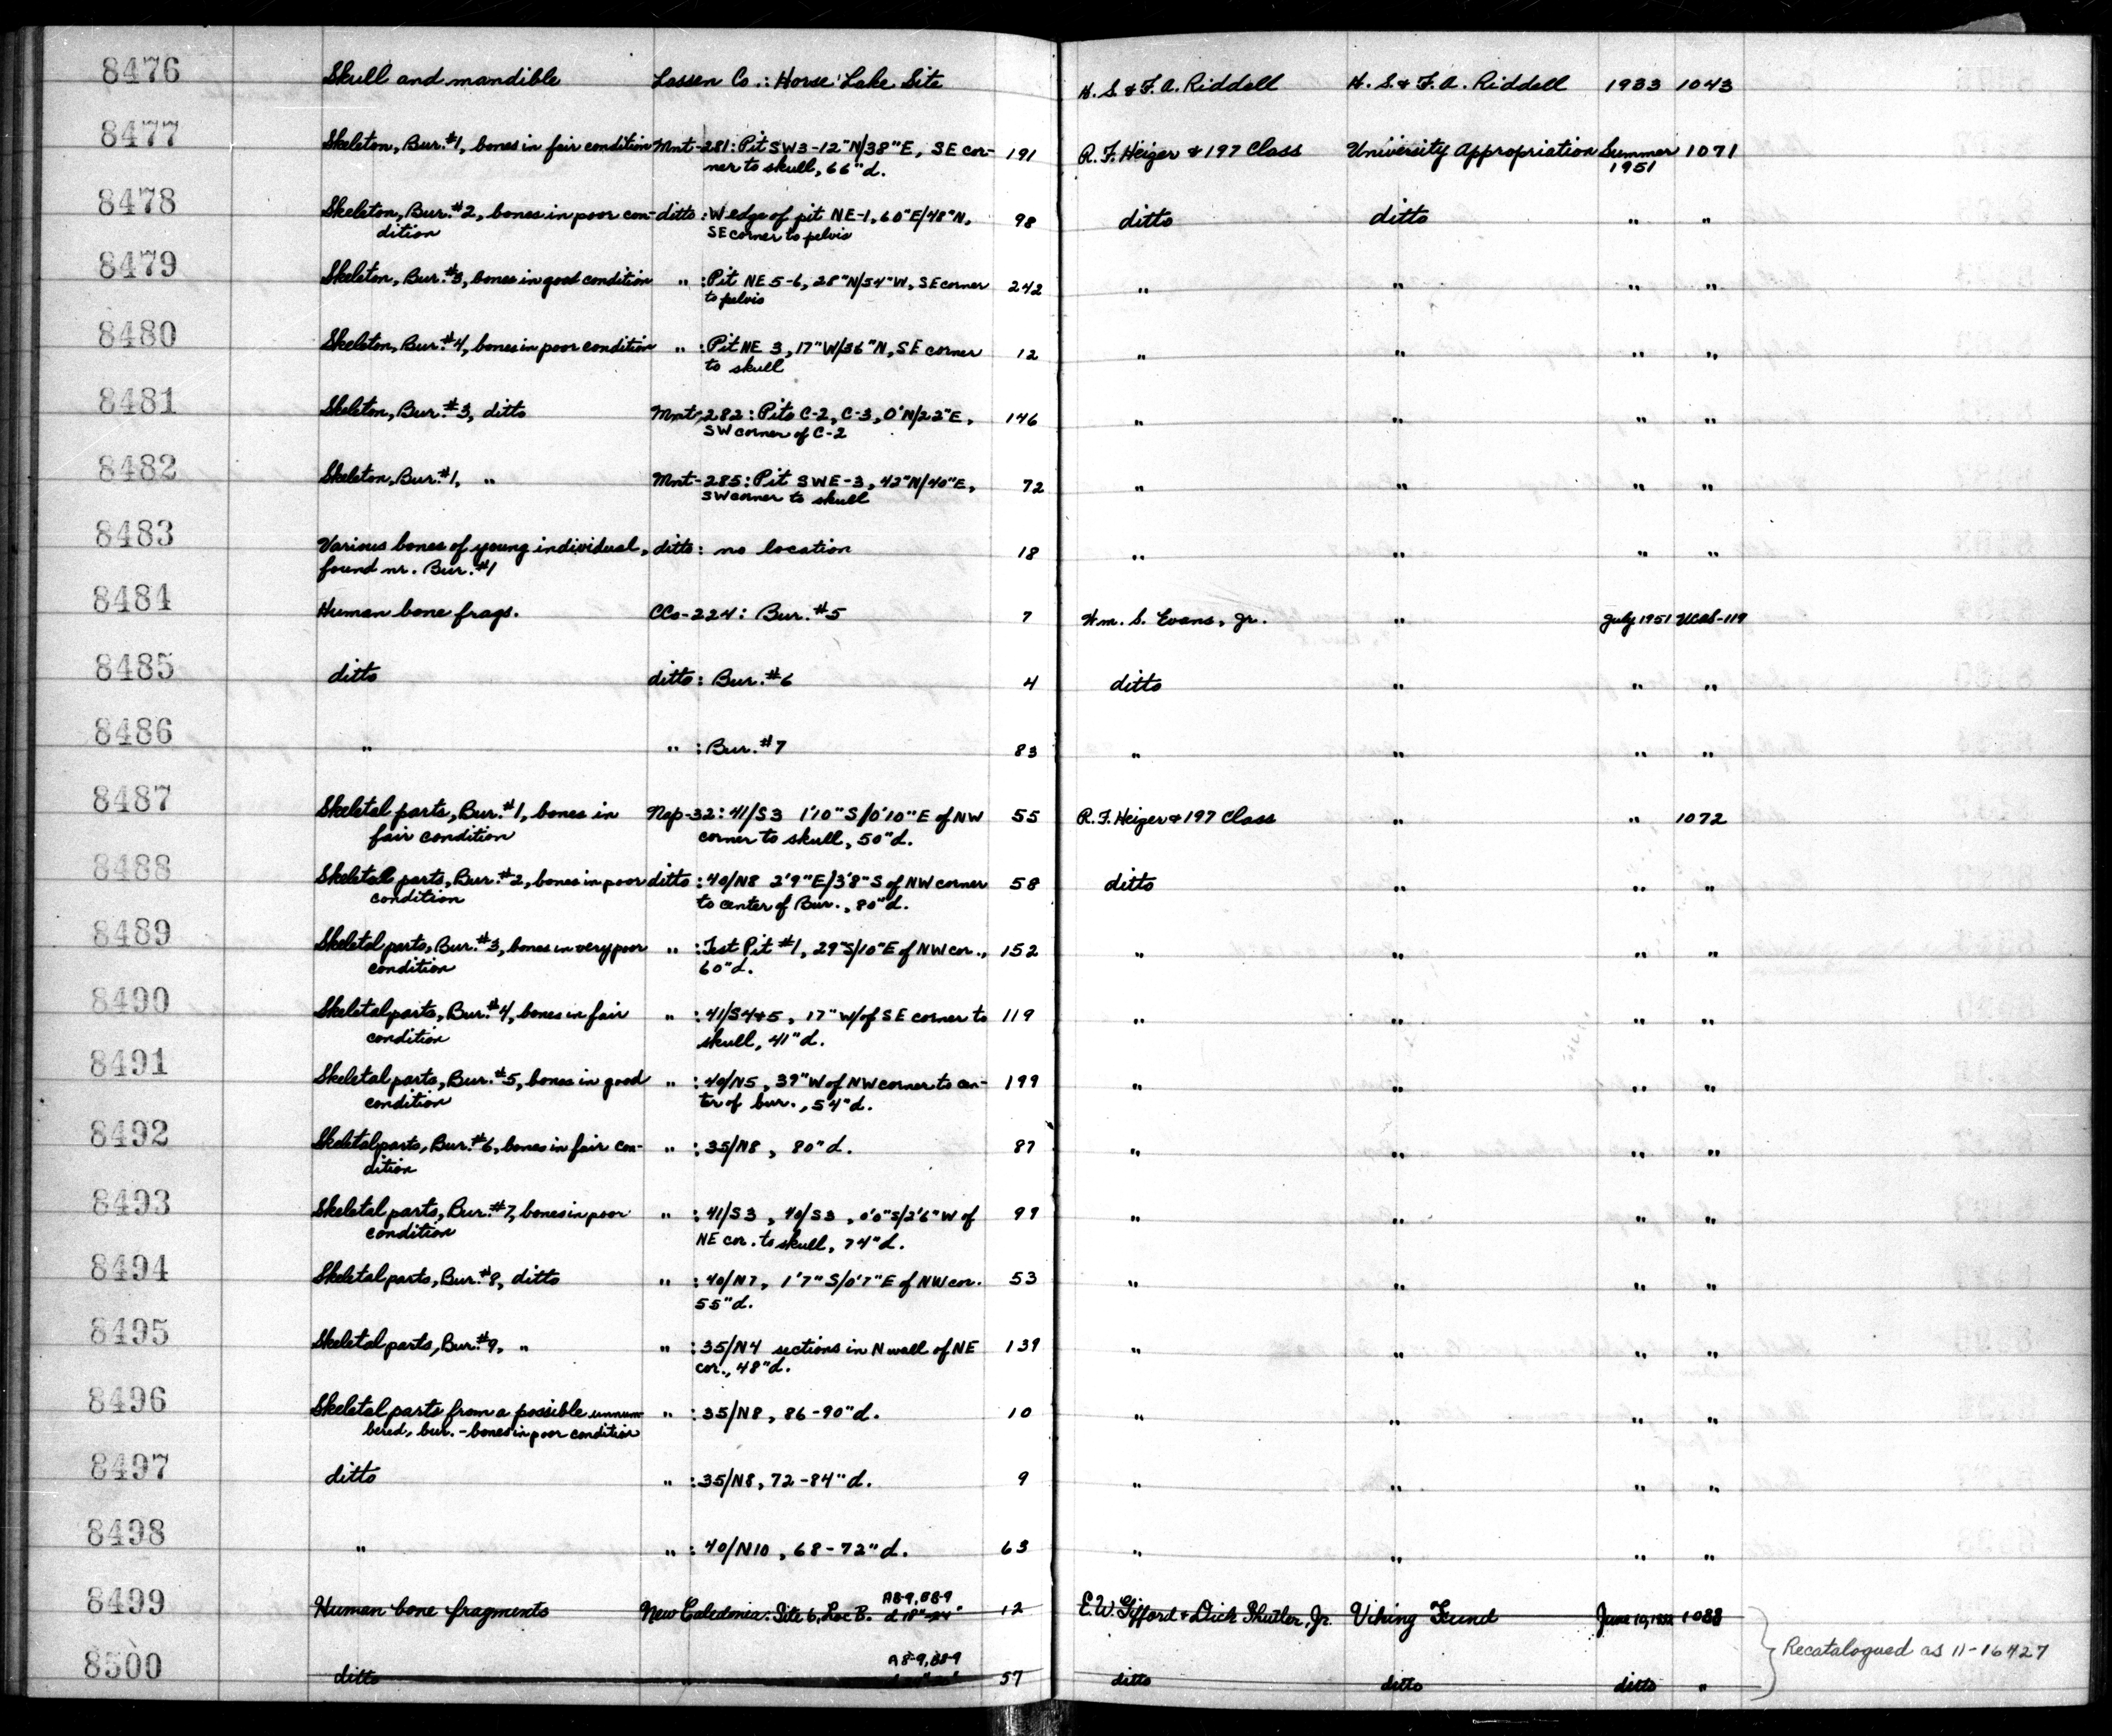 8476 Skull and mandible Lassen Co.: Horse Lake Site H. S. & F. A. Riddell H. S. & F. A. Riddell 1933 1043
8477 Skeleton, Bur. #1, bones in fair condition Mnt-281: Pit SW3-12"N/38"E, SE cor- 191 R. F. Heizer & 197 Class University Appropriation Summer 1071
ner to skull, 66"d. 1951
8478 Skeleton, Bur. #2, bones in poor con- ditto: W edge of pit NE-1, 60"E/48"N, 98 ditto ditto " "
dition SE corner to pelvis
8479 Skeleton, Bur. #3, bones in good condition " : Pit NE 5-6, 28"N/54"W, SE corner 242 " " " "
to pelvis
8480 Skeleton, Bur. #4, bones in poor condition " : Pit NE 3, 17"W/36"N, SE corner 12 " " " "
to skull
8481 Skeleton, Bur. #3, ditto Mnt-282: Pits C-2, C-3, 0'N/22"E, 146 " " " "
SW corner of C-2
8482 Skeleton, Bur. #1, " Mnt-285: Pit SWE-3, 42"N/40"E, 72 " " " "
SW corner to skull
8483 Various bones of young individual, ditto: no location 18 " " " "
found nr. Bur. #1
8484 Human bone frags. CCo-224: Bur. #5 7 Wm. S. Evans, Jr. " July 1951 UCAS-119
8485 ditto ditto: Bur. #6 4 ditto " " "
8486 " " : Bur. #7 83 " " " "
8487 Skeletal parts, Bur. #1, bones in Nap-32: 41/S3 1'10"S/0'10"E of NW 55 R. F. Heizer & 197 Class " " 1072
fair condition corner to skull, 50"d.
8488 Skeletal parts, Bur. #2, bones in poor ditto: 40/N8 2'9"E/3'8"S of NW corner 58 ditto " " "
condition to center of Bur., 80"d.
8489 Skeletal parts, Bur. #3, bones in very poor " : Test Pit #1, 29"S/10"E of NW cor., 152 " " " "
condition 60"d.
8490 Skeletal parts, Bur. #4, bones in fair " : 41/S4+5, 17"W/of SE corner to 119 " " " "
condition skull, 41"d.
8491 Skeletal parts, Bur. #5, bones in good " : 40/N5, 39"W of NW corner to cen- 199 " " " "
condition ter of bur., 54"d.
8492 Skeletal parts, Bur. #6, bones in fair con- " : 35/N8, 80"d. 87 " " " "
dition
8493 Skeletal parts, Bur. #7, bones in poor " : 41/S3, 40/S3, 0'0"S/2'6"W of 99 " " " "
condition NE cor. to skull, 74"d.
8494 Skeletal parts, Bur. #8, ditto " : 40/N7, 1'7"S/0'7"E of NW cor. 53 " " " "
55"d.
8495 Skeletal parts, Bur. #9, " " : 35/N4 sections in N wall of NE 139 " " " "
cor., 48"d.
8496 Skeletal parts from a possible unnum- " : 35/N8, 86-90"d. 10 " " " "
bered, bur. - bones in poor condition
8497 ditto " : 35/N8, 72-84"d. 9 " " " "
8498 " " : 40/N10, 68-72"d. 63 " " " "
A8-9, B8-9
8499 Human bone fragments New Caledonia: Site 6, Loc B. d 18"-24" 12 E. W. Gifford & Dick Shutler, Jr. Viking Fund June 10, 1088
Recatalogued as 11-16427
A8-9, B8-9
8500 ditto " 57 ditto ditto ditto "